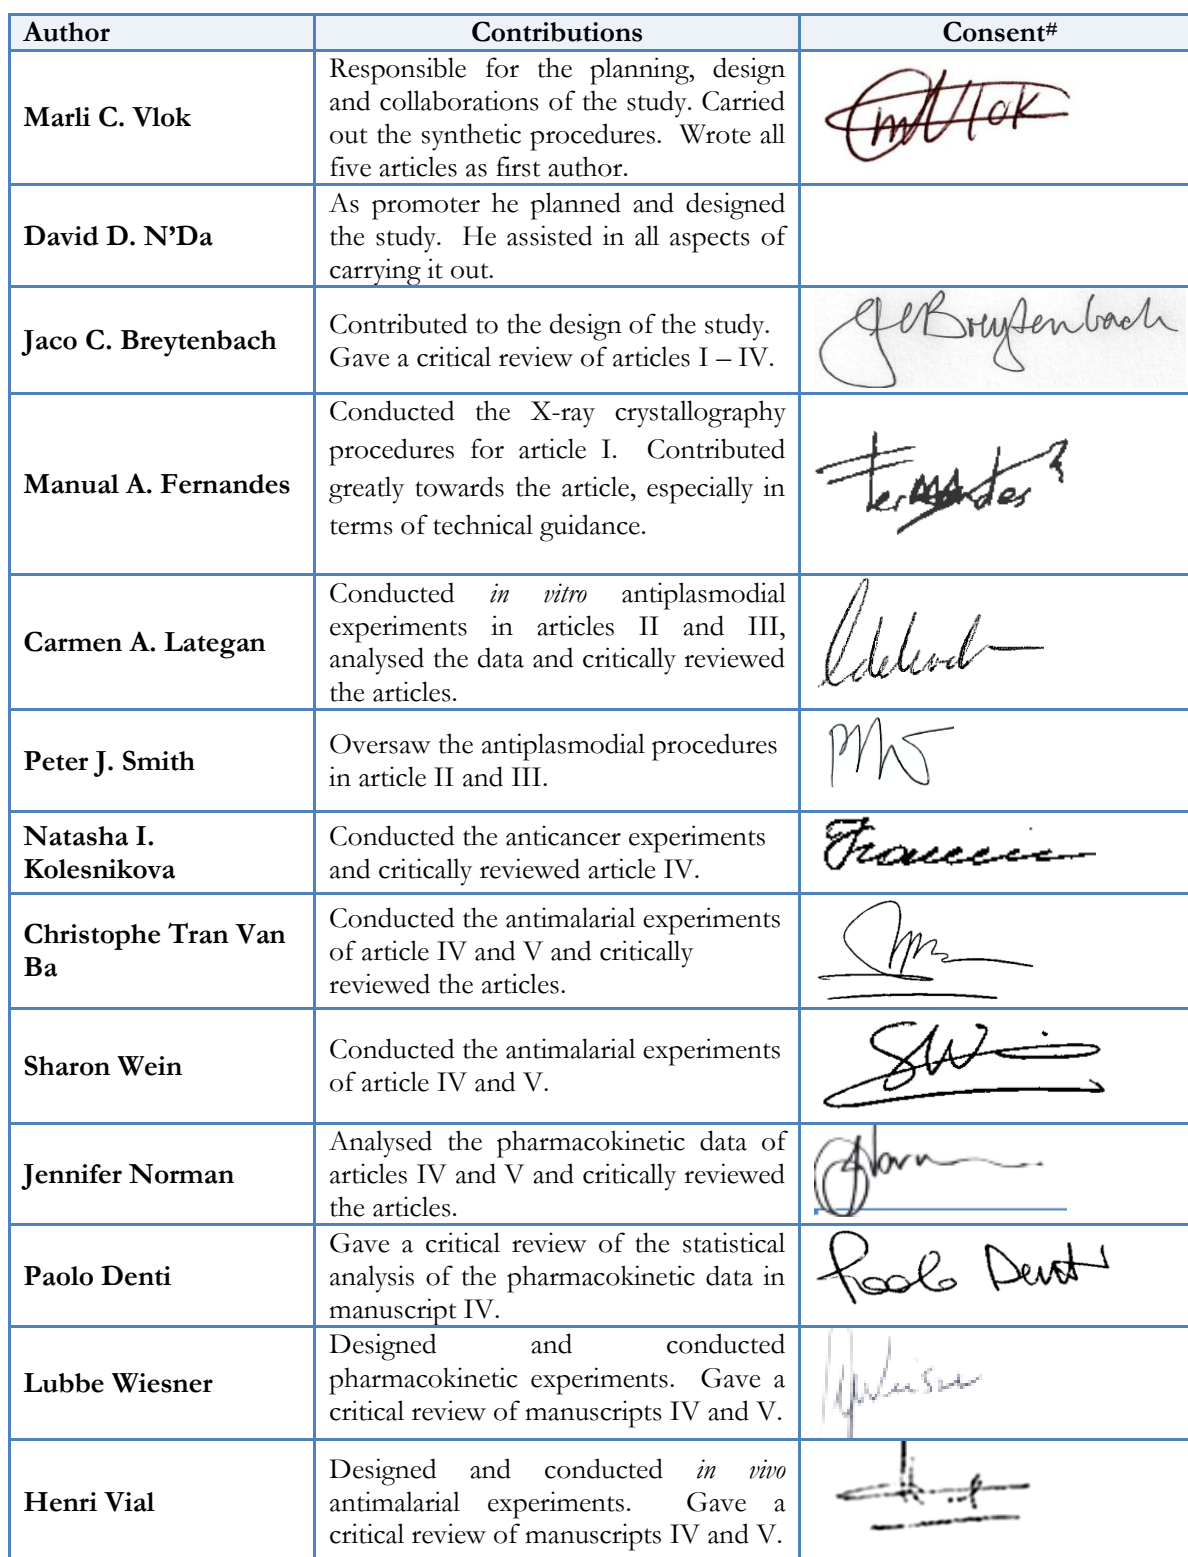 Author Contributions Consent#
Marli C. Vlok
Responsible for the planning, design
and collaborations of the study. Carried
out the synthetic procedures. Wrote all
five articles as first author.
Vlok
David D. N’Da
As promoter he planned and designed
the study. He assisted in all aspects of
carrying it out.
Jaco C. Breytenbach
Contributed to the design of the study.
Gave a critical review of articles I – IV.
Breytenbach
Manual A. Fernandes
Conducted the X-ray crystallography
procedures for article I. Contributed
greatly towards the article, especially in
terms of technical guidance.
Fernandes
Carmen A. Lategan
Conducted in vitro antiplasmodial
experiments in articles II and III,
analysed the data and critically reviewed
the articles.
Peter J. Smith
Oversaw the antiplasmodial procedures
in article II and III.
Natasha I.
Kolesnikova
Conducted the anticancer experiments
and critically reviewed article IV.
Christophe Tran Van
Ba
Conducted the antimalarial experiments
of article IV and V and critically
reviewed the articles.
Sharon Wein
Conducted the antimalarial experiments
of article IV and V.
SW
Jennifer Norman
Analysed the pharmacokinetic data of
articles IV and V and critically reviewed
the articles.
Paolo Denti
Gave a critical review of the statistical
analysis of the pharmacokinetic data in
manuscript IV.
Paolo Denti
Lubbe Wiesner
Designed and conducted
pharmacokinetic experiments. Gave a
critical review of manuscripts IV and V.
Henri Vial
Designed and conducted in vivo
antimalarial experiments. Gave a
critical review of manuscripts IV and V.